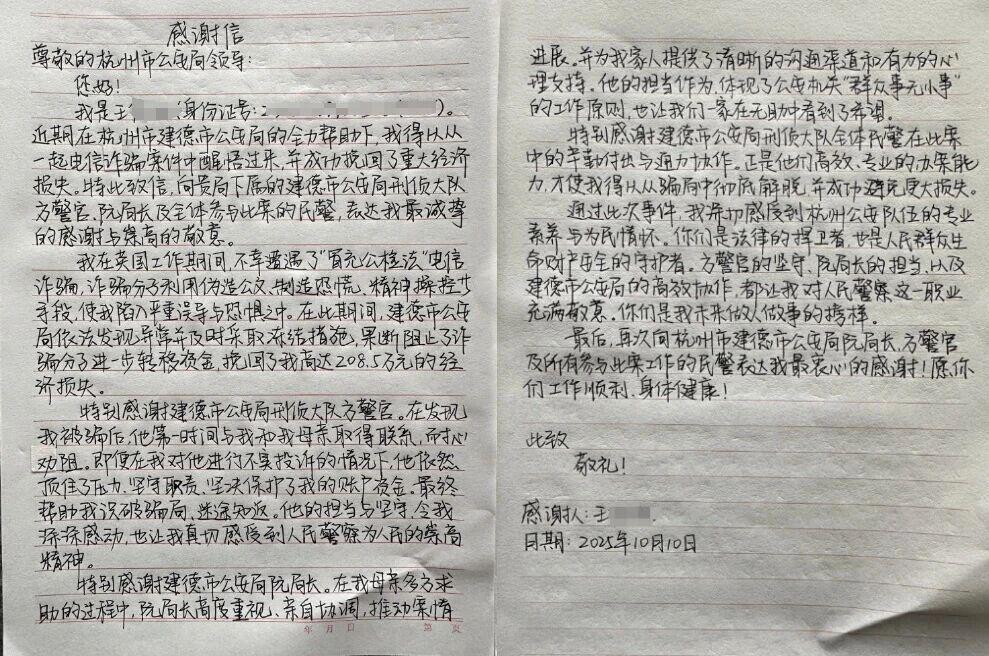 感谢信
尊敬的杭州市公安局领导:
您好!
我是王 (身份证号:2 )。
近期在杭州市建德市公安局的全力帮助下,我得以从
一起电信诈骗案件中醒悟过来,并成功挽回了重大经济
损失。特此致信,向贵局下属的建德市公安局刑侦大队
方警官、阮局长及全体参与此案的民警,表达我最诚挚
的感谢与崇高的敬意。
我在英国工作期间,不幸遭遇了“冒充公检法”电信
诈骗,诈骗分子利用伪造公文、制造恐慌、精神操控等
手段,使我陷入严重误导与恐惧之中。在此期间,建德市公安
局依法发现异常并及时采取冻结措施,果断阻止了诈
骗分子进一步转移资金,挽回了我高达208.5万元的经
济损失。
特别感谢建德市公安局刑侦大队方警官。在发现
我被骗后,他第一时间与我和我母亲取得联系,耐心
劝阻。即便在我对他进行不实投诉的情况下,他依然
顶住了压力、坚守职责、坚决保护了我的账户资金。最终
帮助我识破骗局、迷途知返。他的担当与坚守,令我
深深感动,也让我真切感受到人民警察为人民的崇高
精神。
特别感谢建德市公安局阮局长。在我母亲多方求
助的过程中,阮局长高度重视、亲自协调,推动案情
年 月 日 第 页
进展。并为我家人提供了清晰的沟通渠道和有力的心
理支持。他的担当作为,体现了公安机关“群众事无小事”
的工作原则,也让我们一家在无助中看到了希望。
特别感谢建德市公安局刑侦大队全体民警在此案
中的辛勤付出与通力协作。正是他们高效、专业的办案能
力,才使我得以从骗局中彻底解脱,并成功避免更大损失。
通过此次事件,我深切感受到杭州公安队伍的专业
素养与为民情怀。你们是法律的捍卫者,也是人民群众生
命财产安全的守护者。方警官的坚守、阮局长的担当,以及
建德市公安局的高效协作,都让我对人民警察这一职业
充满敬意。你们是我未来做人做事的榜样。
最后,再次向杭州市建德市公安局阮局长、方警官
及所有参与此案工作的民警表达我最衷心的感谢!愿你
们工作顺利、身体健康!
此致
敬礼!
感谢人:王
日期:2025年10月10日